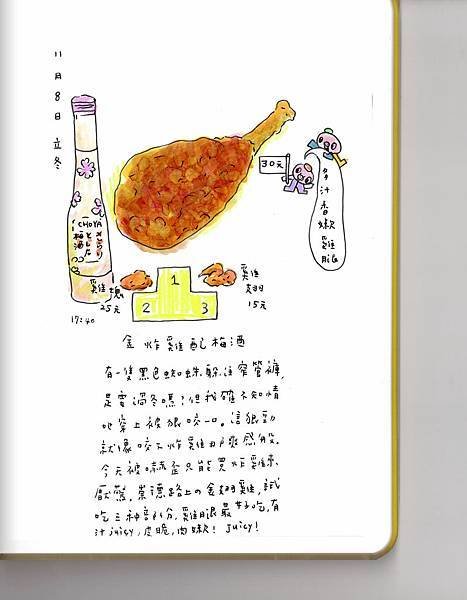 11月8日 立冬
CHOYA
さらりとした
梅酒
30元
多汁香嫩雞腿
雞塊
25元
1
2
3
雞翅
15元
17:40
金炸雞配梅酒
有一隻黑色蜘蛛躲在窄管褲,
是要過冬嗎?但我確不知情
地穿上被狠咬一口。這狠勁
就像咬下炸雞的爽感般。
今天被嚇歪只能買炸雞來
壓驚。崇德路上の金翅雞,試
吃三種部份,雞腿最好吃,有
汁juicy,皮脆,肉嫩! Juicy!